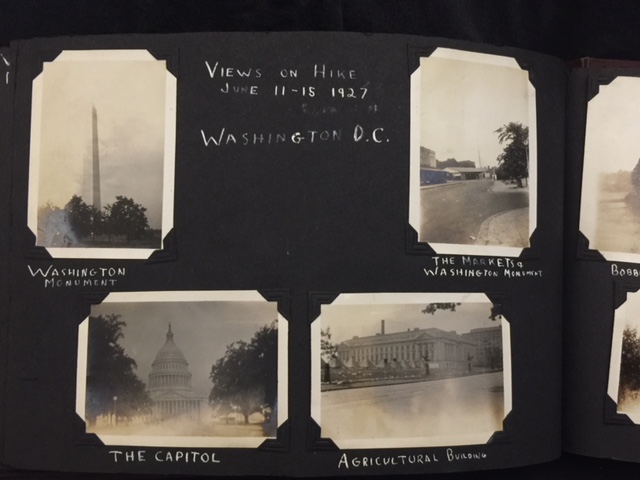 VIEWS ON HIKE
JUNE 11-15 1927
WASHINGTON D.C.
WASHINGTON
MONUMENT
THE MARKETS &
WASHINGTON MONUMENT
THE CAPITOL
AGRICULTURAL BUILDING